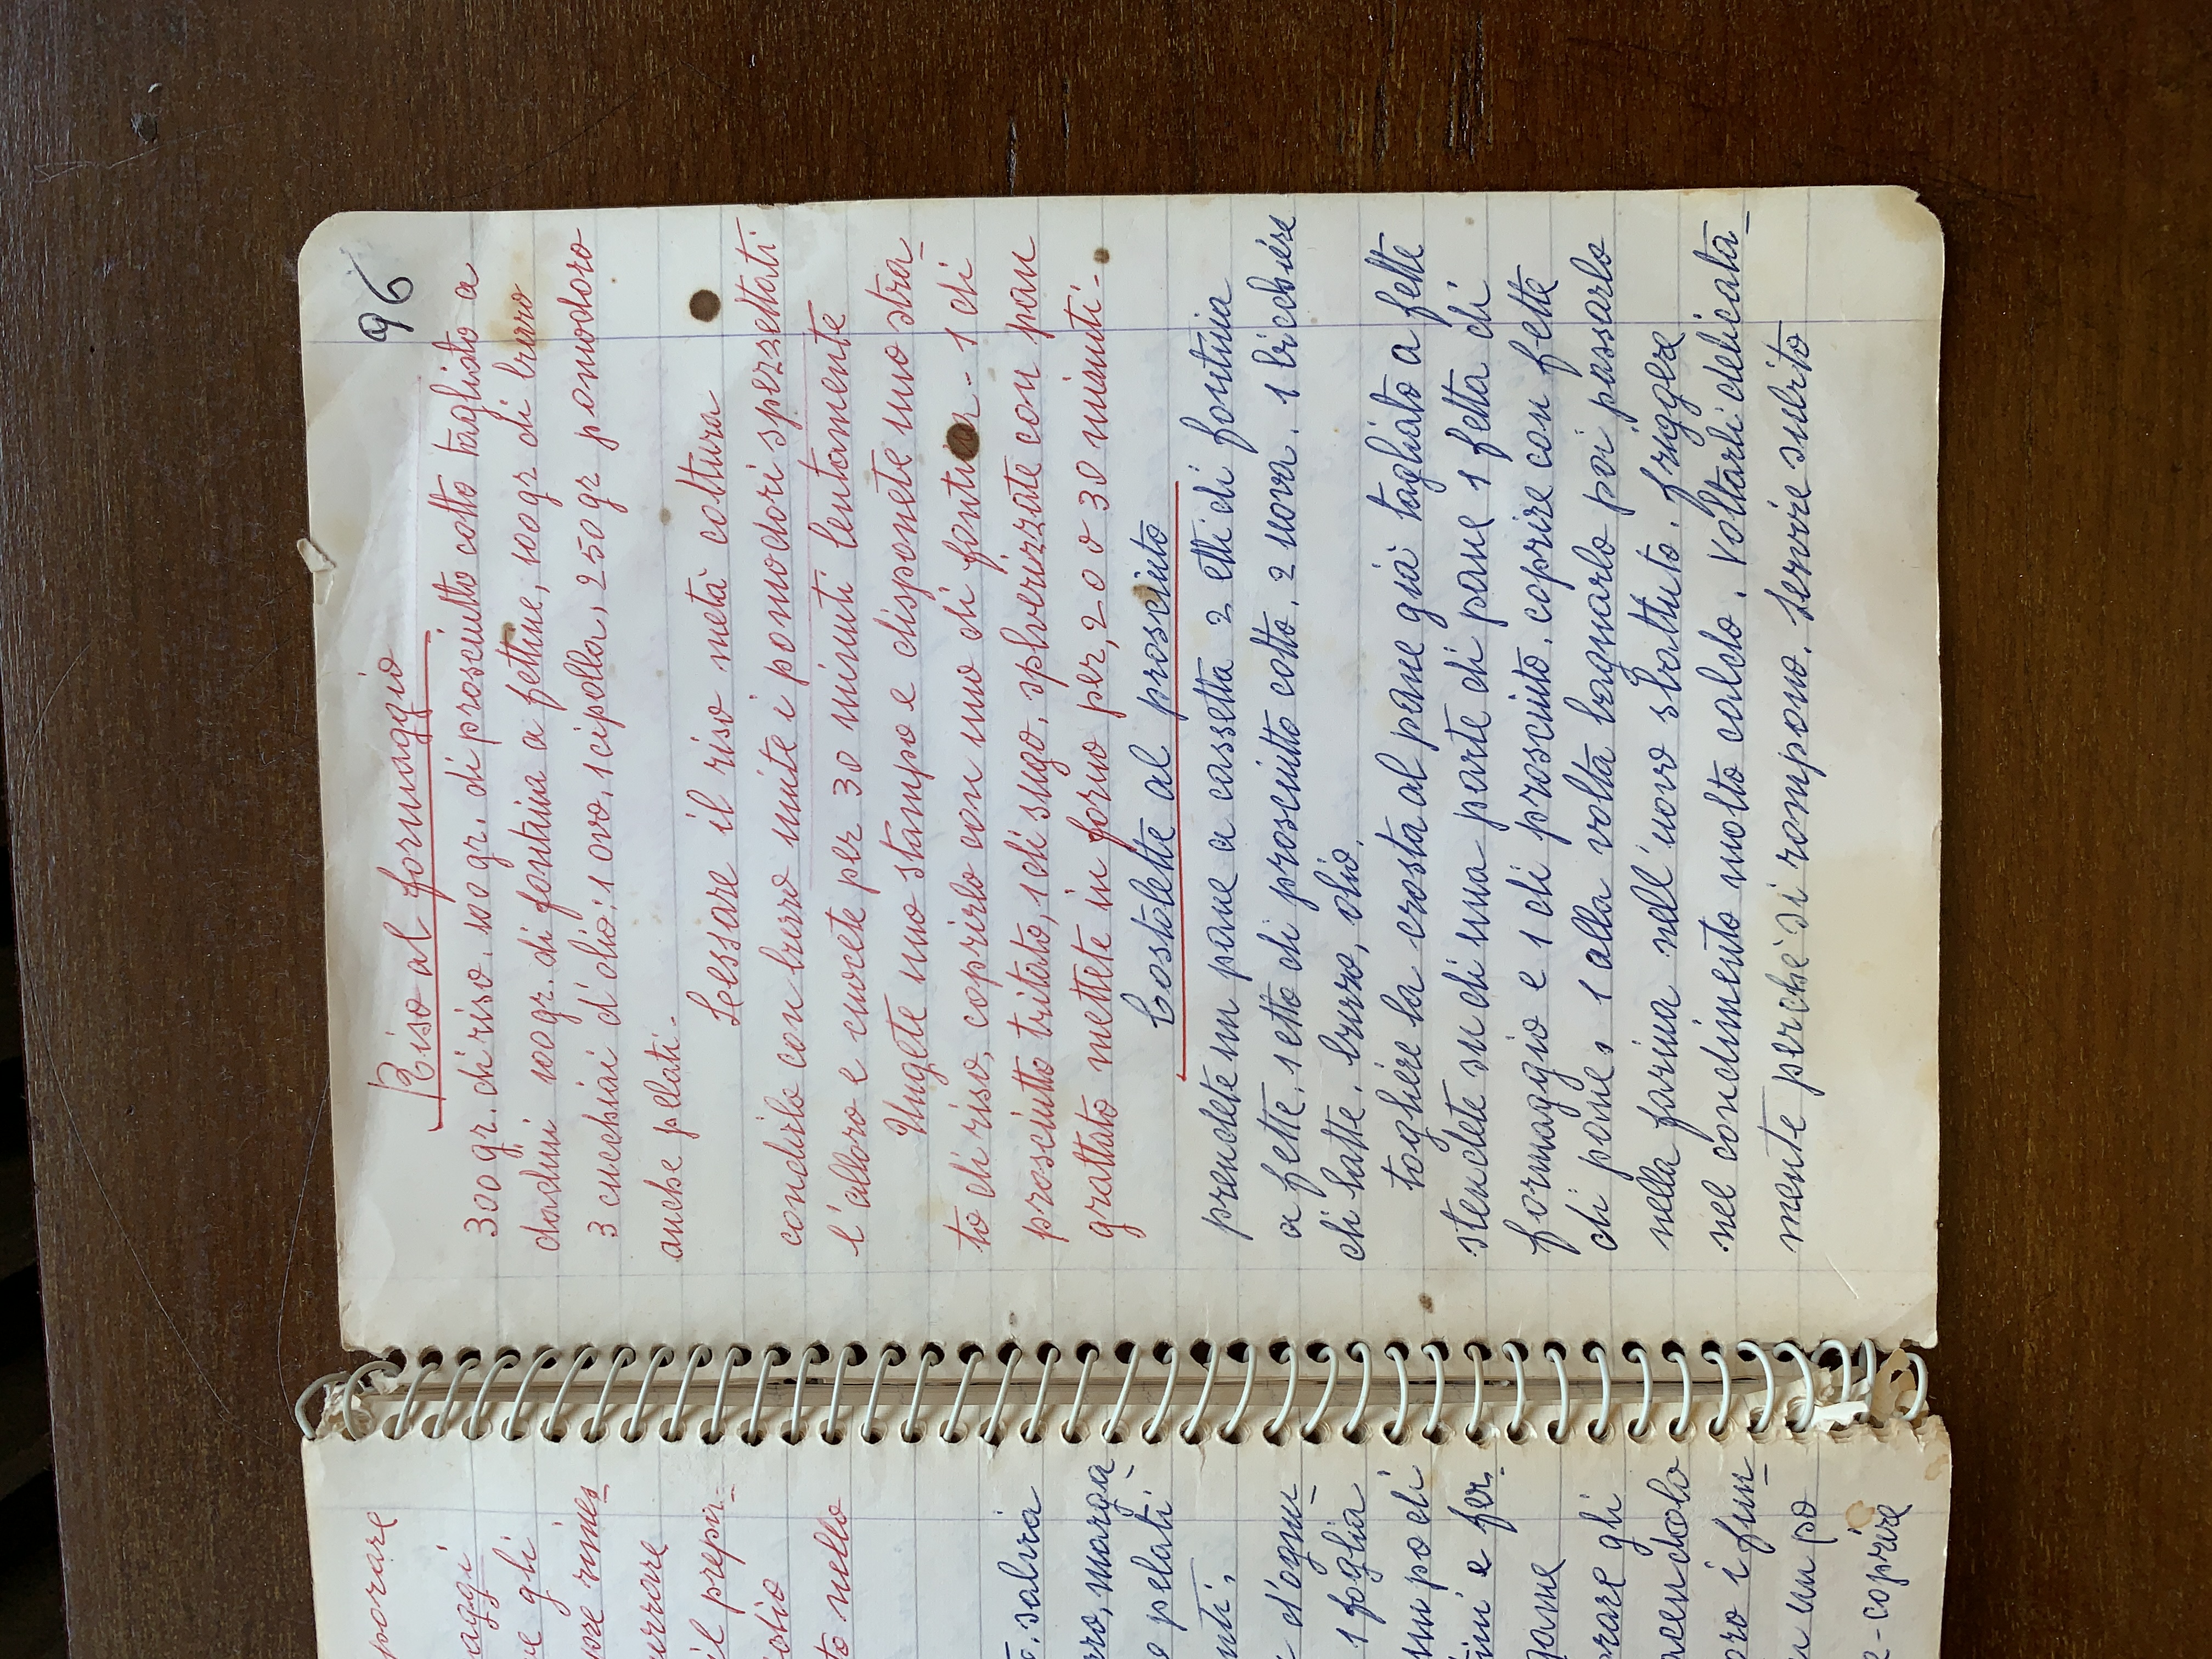 porare
aggi
ve gli
pre rimes_
urrare
il prepa=
odio
to nello
salvia
rro, marga_
o pelati
nti.
d'ognu_
1 foglia
un po di
tini e fer_
game
rare gli
acendolo
oro i fun_
un po
e - coprire
96
Riso al formaggio
300 gr. di riso. 100 gr. di prosciutto cotto tagliato a
dadini 100 gr. di fontina a fettine, 100 gr di burro
3 cucchiai d'olio: 1 ovo, 1 cipolla, 250 gr pomodoro
anche pelati -
Lessare il riso metà cottura
condirlo con burro unite i pomodori spezzettati
l'alloro e cuocete per 30 minuti lentamente
Ungete uno stampo e disponete uno stra_
to di riso, coprirlo con uno di fontina - 1 di
prosciutto tritato, 1 di sugo. splverizzate con pan
grattato mettete in forno per, 20 o 30 minuti -
Costolette al prosciuto
prendete un pane a cassetta 2 etti di fontina
a fette. 1 etto di prosciutto cotto. 2 uova. 1 bicchiere
di latte. burro, olio.
togliere la crosta al pane già tagliato a fette
stendete su di una parte di pane 1 fetta di
formaggio e 1 di prosciuto. coprire con fette
di pane, 1 alla volta bagnarlo poi passarlo
nella farina nell'uovo sbattuto. friggere
nel condimento molto caldo. Voltarli delicata_
mente perchè si rompono. Servire subito